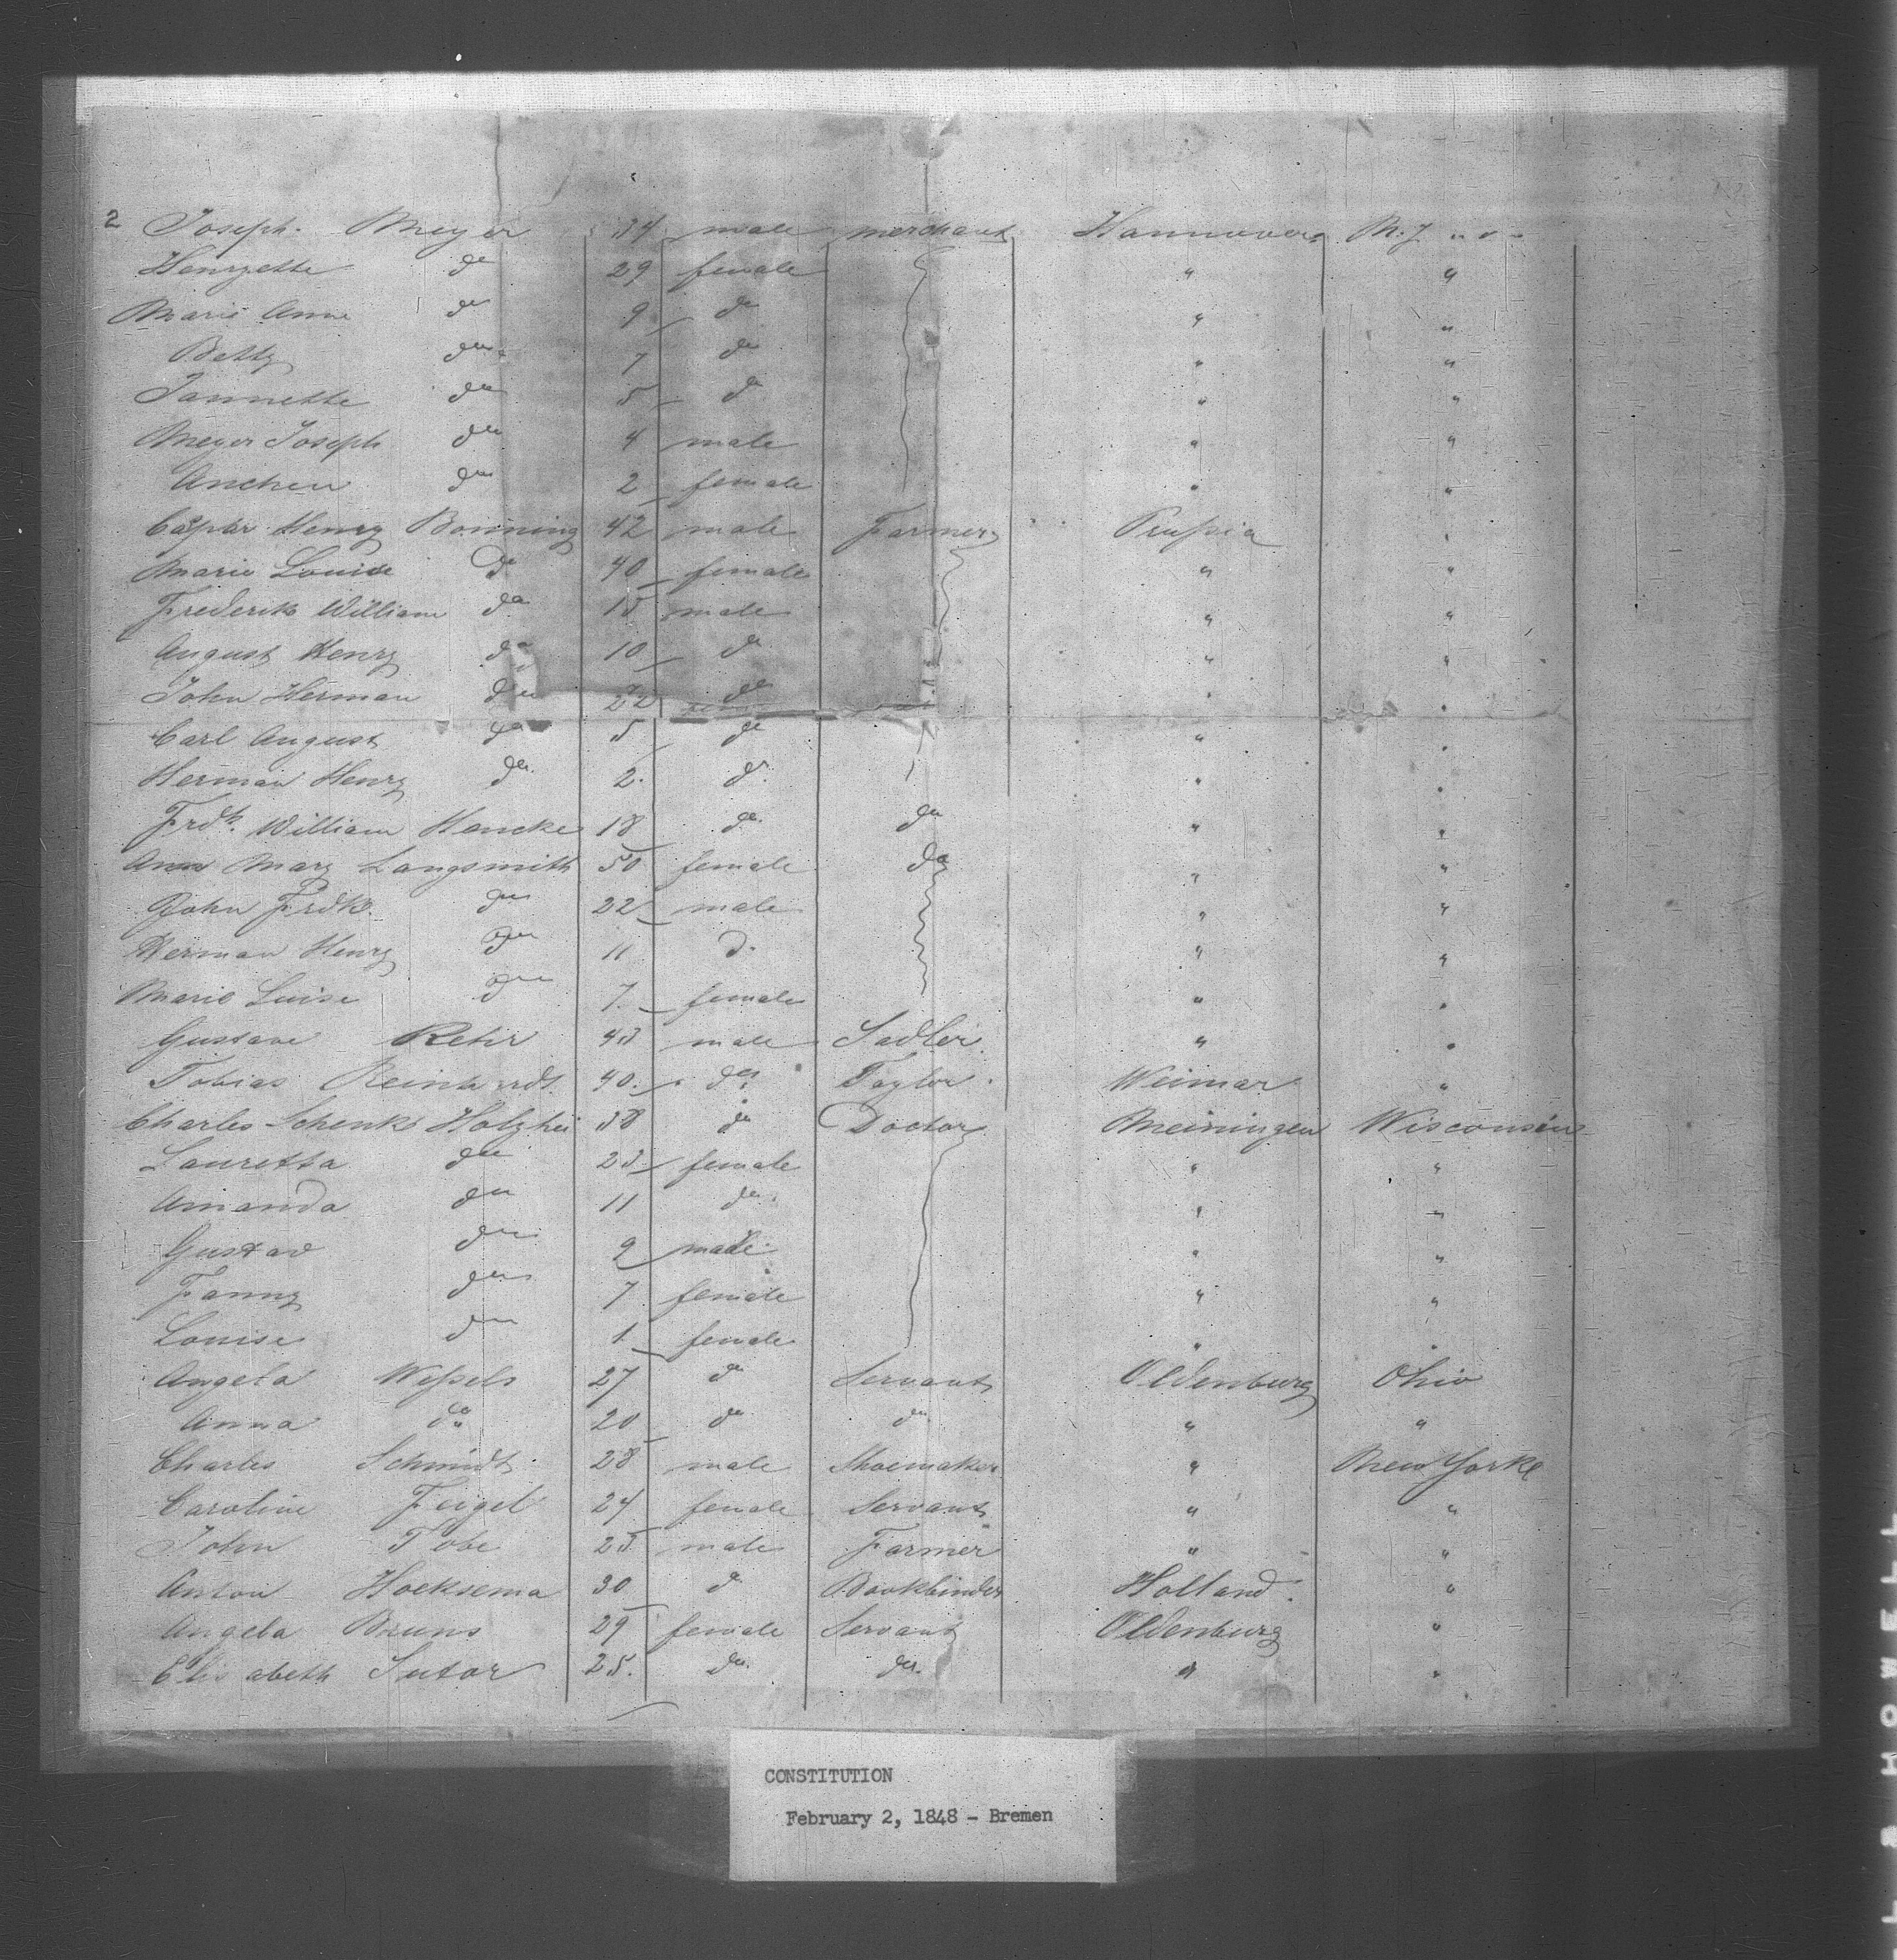 2 Joseph Meyer 34 male merchant Hannover
Henryette do 29 female " "
Marie Anne do 9 do " "
Betty do 7 do " "
Jannette do 5 do " "
Meyer Joseph do 4 male " "
Anchen do 2 female " "
Caspar Henry Bonning 42 male Farmer Prussia "
Marie Louise do 40 female " "
Frederik William do 15 male " "
August Henry do 10 do " "
John Herman do do " "
Carl August do 5 do " "
Herman Henry do 2. do " "
Frdk. William Hencke 18 do do " "
Ann Mary Langsmith 50 female do " "
John Frdk. do 22 male " "
Herman Henry do 11 do " "
Marie Luise do 7 female " "
Gustave Rehr 43 male Sadler " "
Tobias Reinhardt 40. do Taylor Weimar "
Charles Schenk Holzhei 38 do Doctor Meiningen Wisconsin
Lauretta do 23 female " "
Amanda do 11 do " "
Gustav do 9 male " "
Fanny do 7 female " "
Louise do 1 female " "
Angela Wessels 27 do Servant Oldenburg Ohio
Anna do 20 do do " "
Charles Schmidt 28 male Shoemaker " New Yorke
Caroline Feigel 24 female Servant " "
John Tobe 23 male Farmer " "
Anton Hoeksema 30 do Bookbinder Holland "
Angela Bruns 29 female Servant Oldenburg "
Elisabeth Sutor 25. do do " "
CONSTITUTION
February 2, 1848 - Bremen